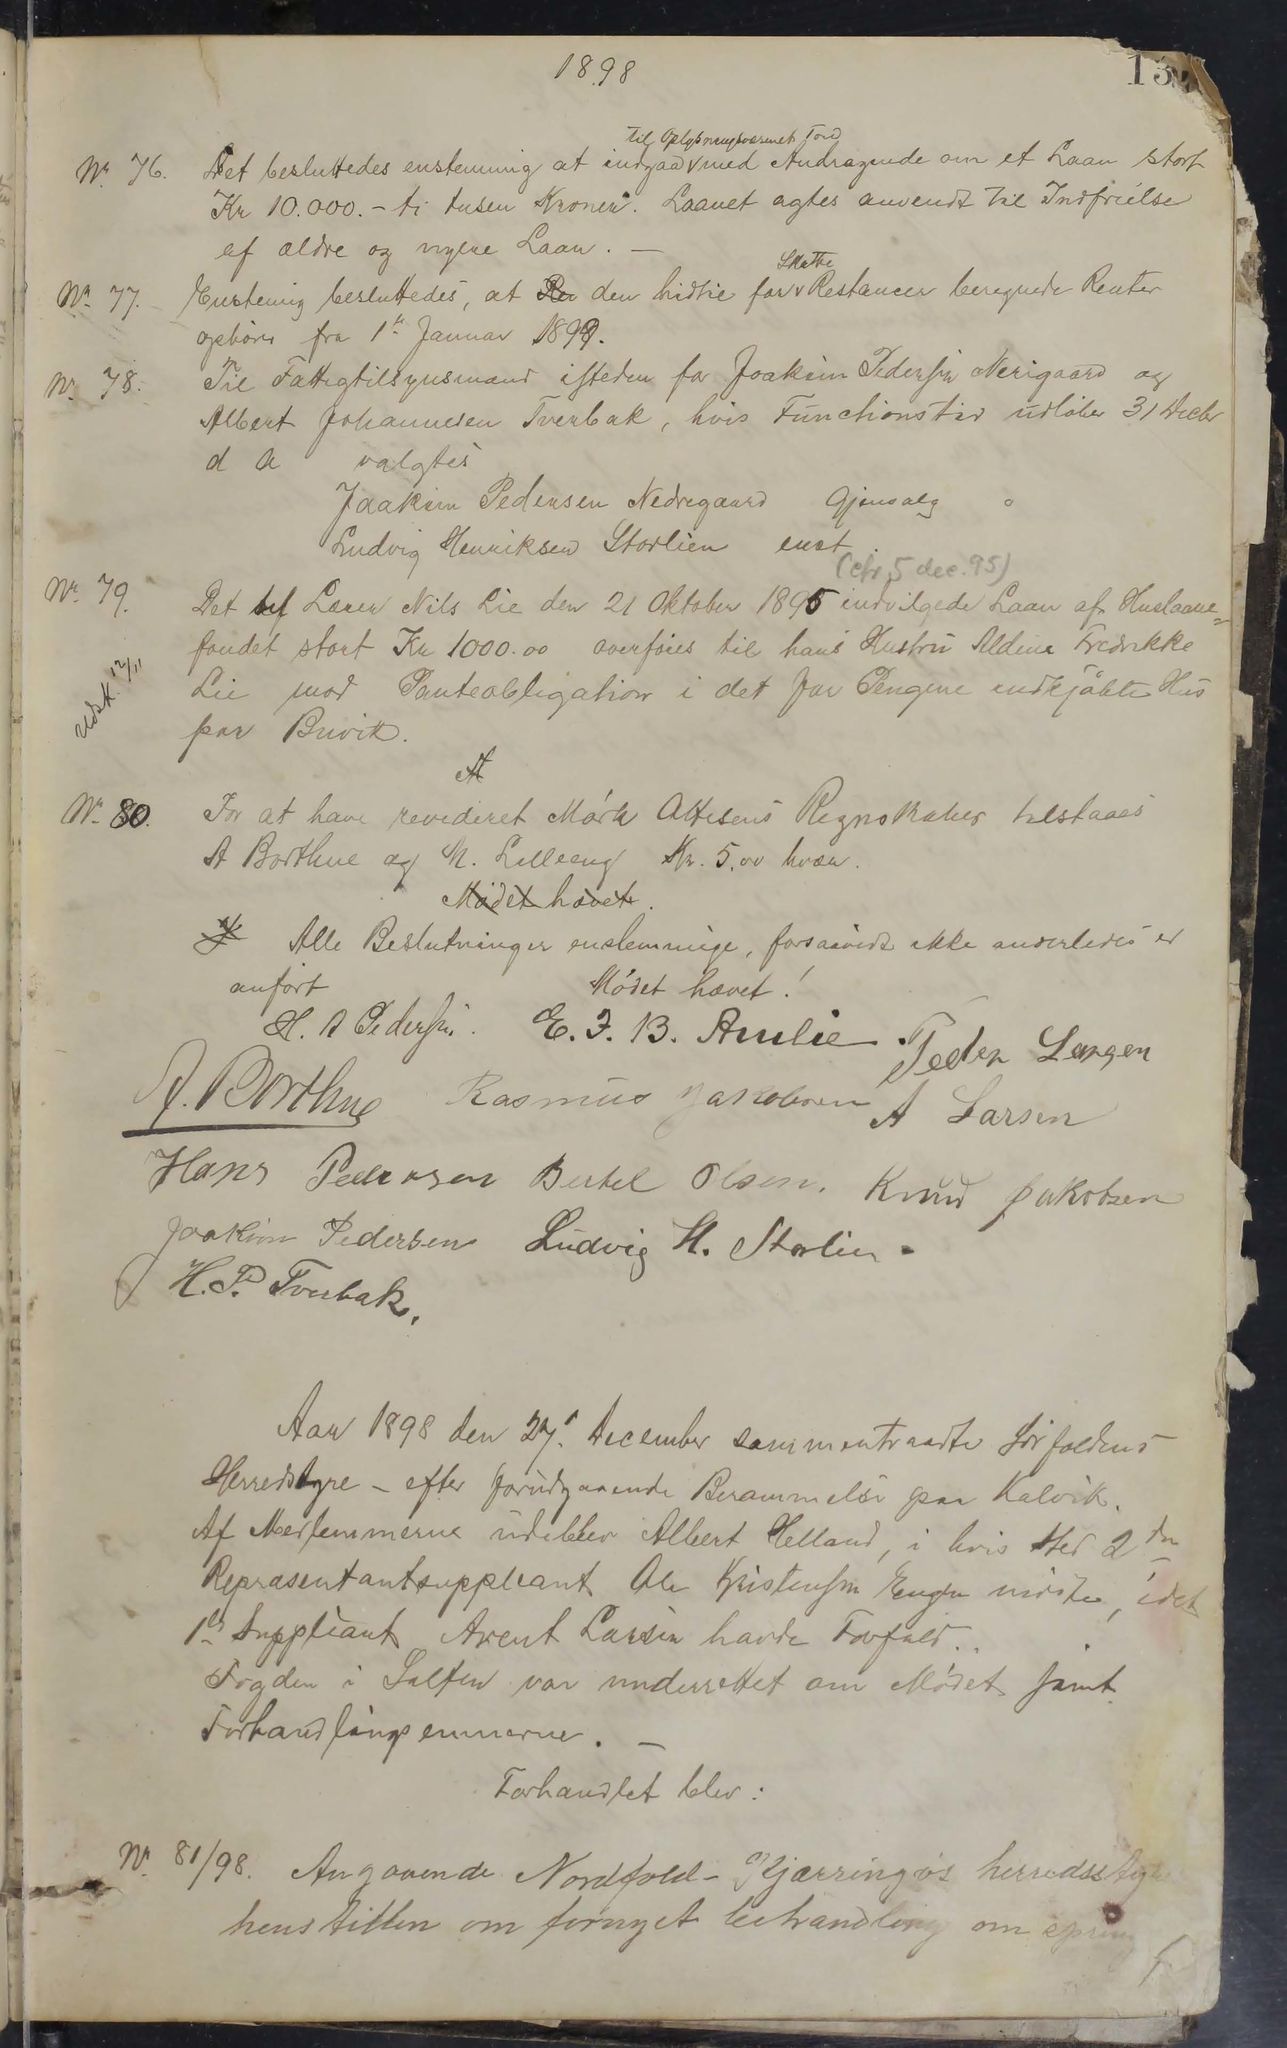 1898
13
til Oplysningsvæsenets Fond
Nr. 76. Det besluttedes enstemmig at indgaa med Andragende om et Laan stort
Kr 10.000.- ti tusen Kroner. Laanet agtes anvendt til Indfrielse
af ældre og nyere Laan. —
Skatte
Nr. 77. Enstemig besluttedes, at den hidtil for Restancer beregnede Renter
ophører fra 1ste Januar 1899.
Nr. 78. Til Fattigtilsynsmænd isteden for Joakim Pedersen Nerigaard og
Albert Johannesen Tverbak, hvis Functionstid udløber 31 Decbr
d A valgtes
Joakim Pedersen Nedregaard Gjenvalg
Ludvig Henriksen Storlien enst.
(cfr. 5 dec. 95)
Nr. 79. Det Lærer Nils Lie den 21 Oktober 1895 indvilgede Laan af Huslaane=
fondet stort Kr 1000.00 overføres til hans Hustru Aldine Fredrikke
Udsk. 12/11
Lie mod Panteobligation i det for Pengene indkjøbte Hus
paa Buvik.
Nr. 80. For at have revideret Mørk Ottesens Regnskaber tilstaaes
A Borthne og N. Lilleeng Kr. 5,00 hver.
Mødet hævet.
Alle Beslutninger enstemmige, forsaavidt ikke anderledes er
anført Mødet hævet!
H. A Pedersen. E. F. B. Amlie Peder Larsen
A. Borthne Rasmus Jakobsen A Larsen
Hans Pedersen Bertel Olsen. Knud Jakobsen
Joakim Pedersen Ludvig H. Storlien.
H. P. Tverbak.
Aar 1898 den 27. December sammentraadte Sørfoldens
Herredstyre - efter forudgaaende Berammelse paa Kalvik.
Af Medlemmerne udeblev Albert Helland, i hvis sted 2den
Repræsentantsuppleant Ole Kristensen Engen mødte, idet
1ste Suppleant Arent Larsen havde Forfald.
Fogden i Salten var underrettet om Mødet samt
Forhandlingsemnerne. —
Forhandlet blev:
Nr. 81/98. Angaaende Nordfold-Kjærringøs herredsstyre
henstillen om fornyet behandling om